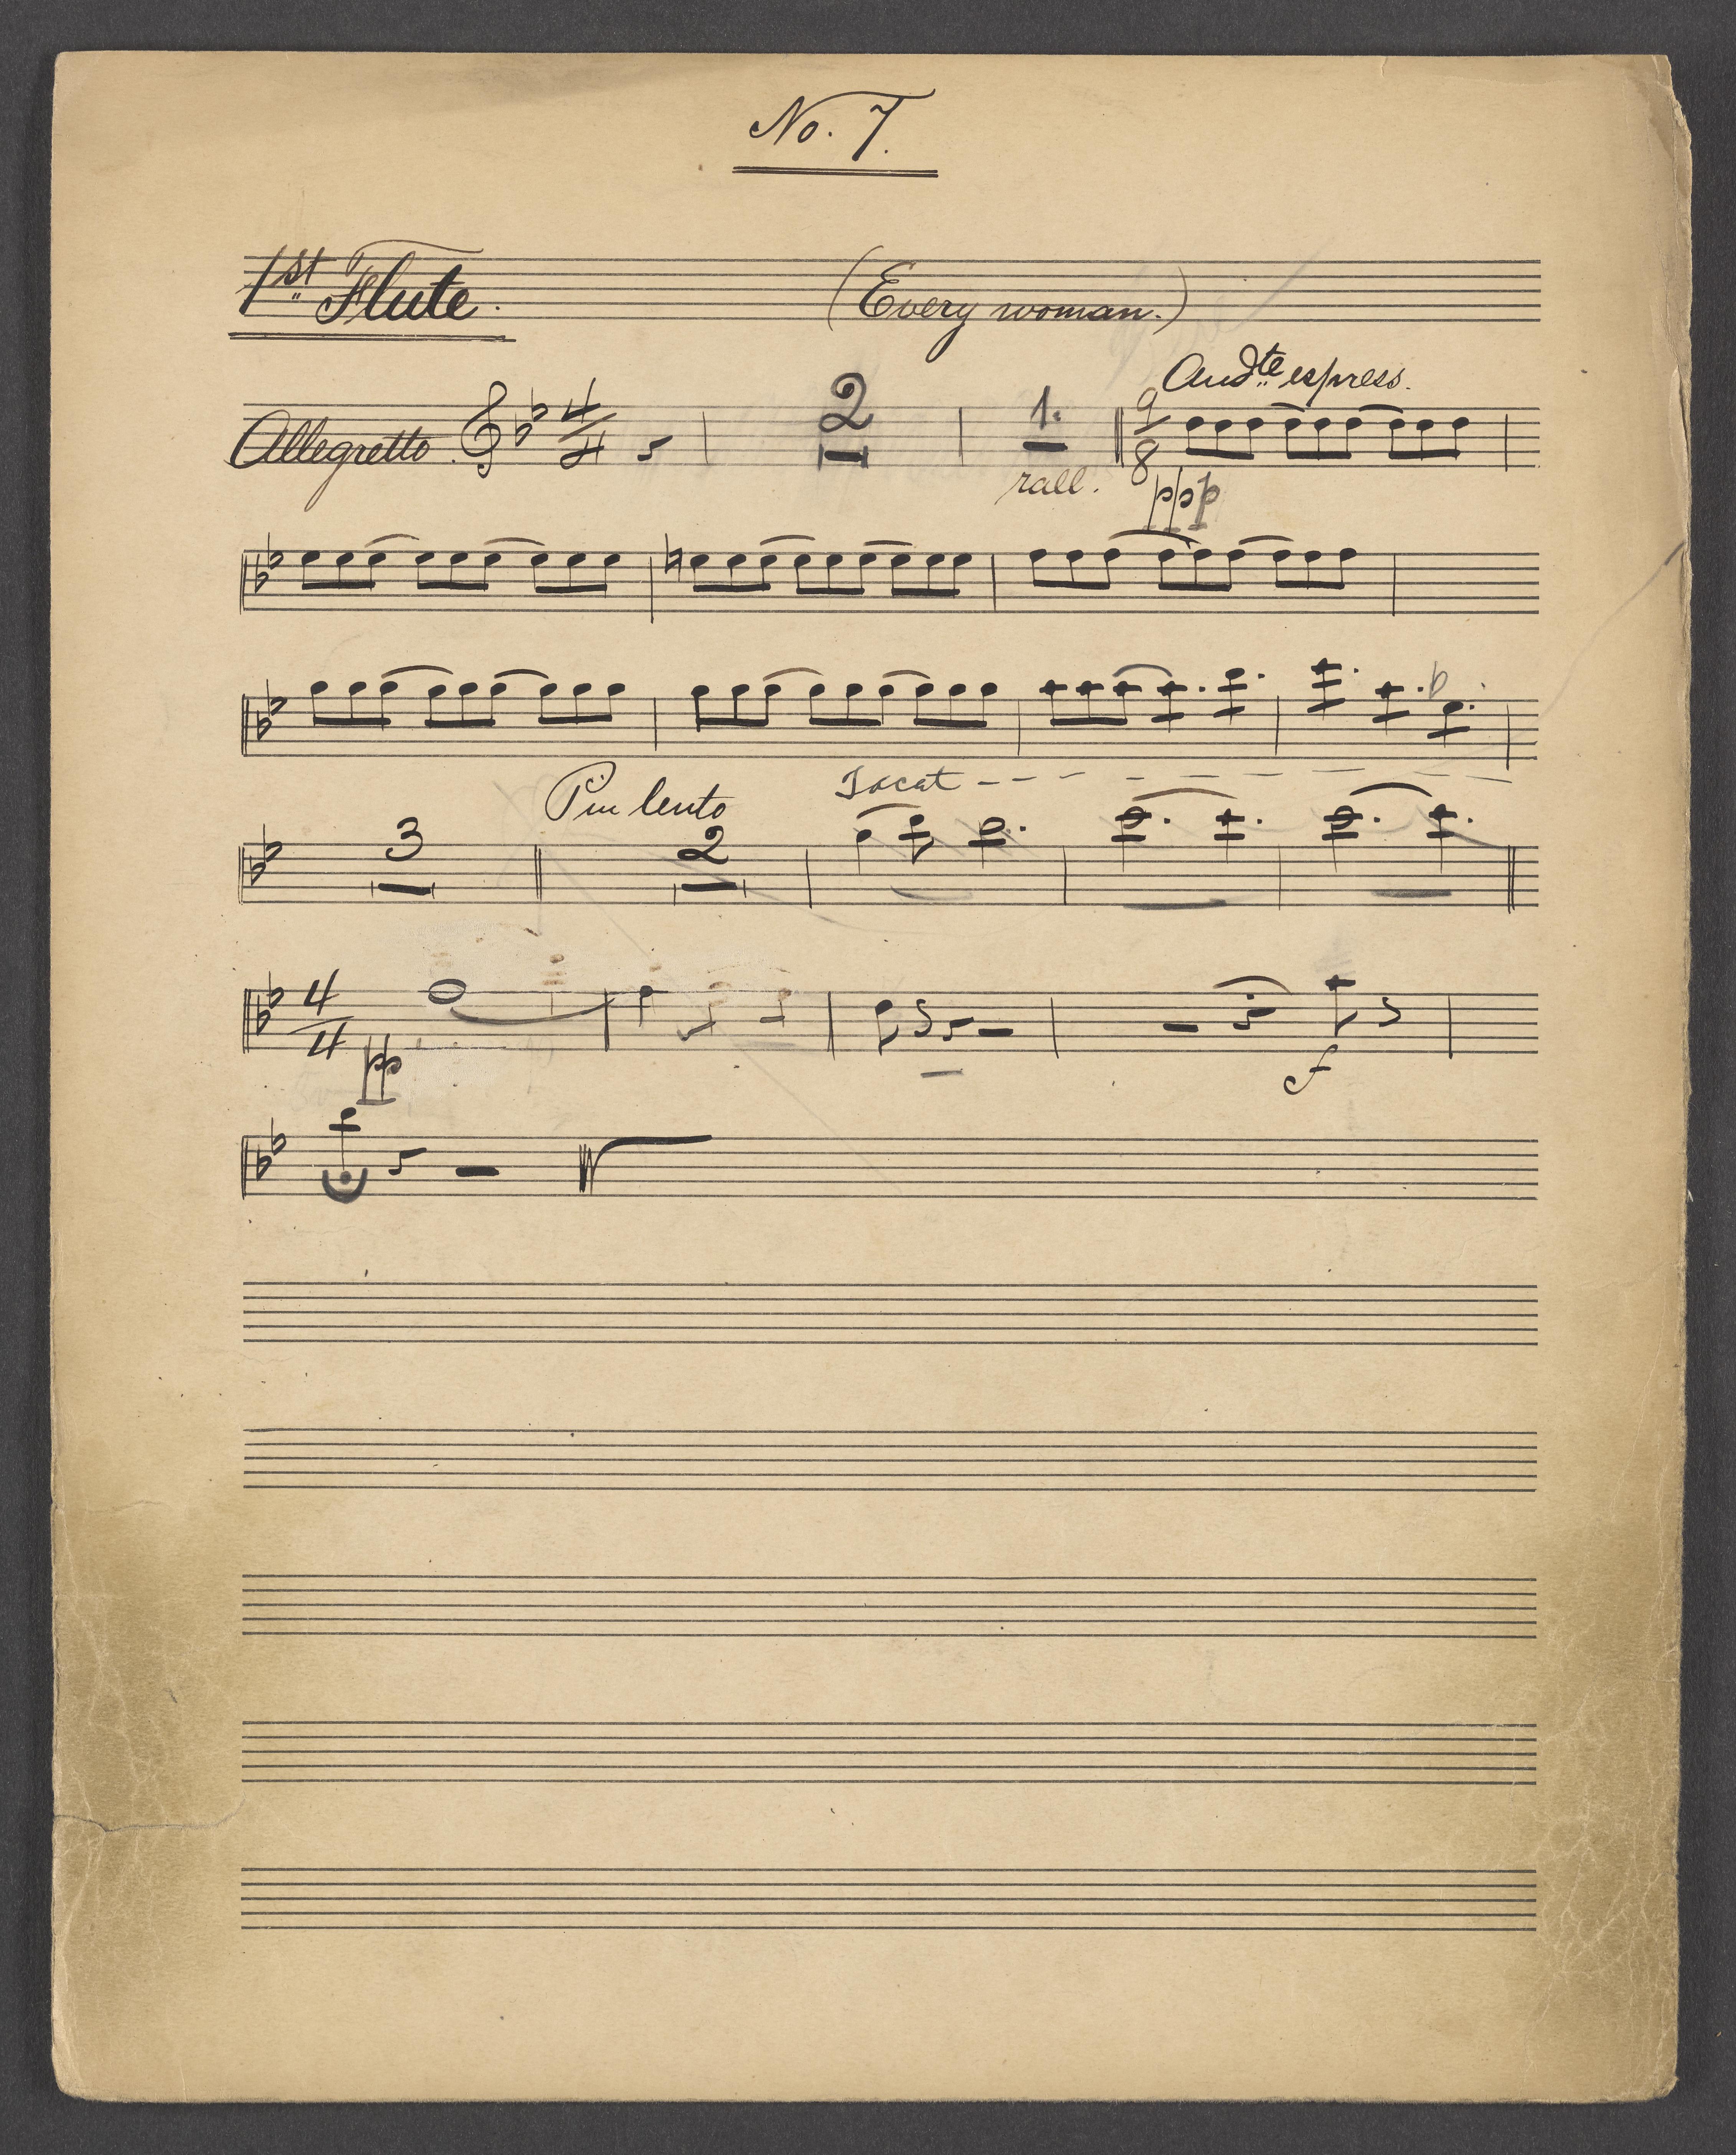 No. 7.
1st Flute. (Every woman.)
Andte espress.
Allegretto. 4/4 2 1. 9/8
rall. ppp
Piu lento
3 2
4/4
pp f